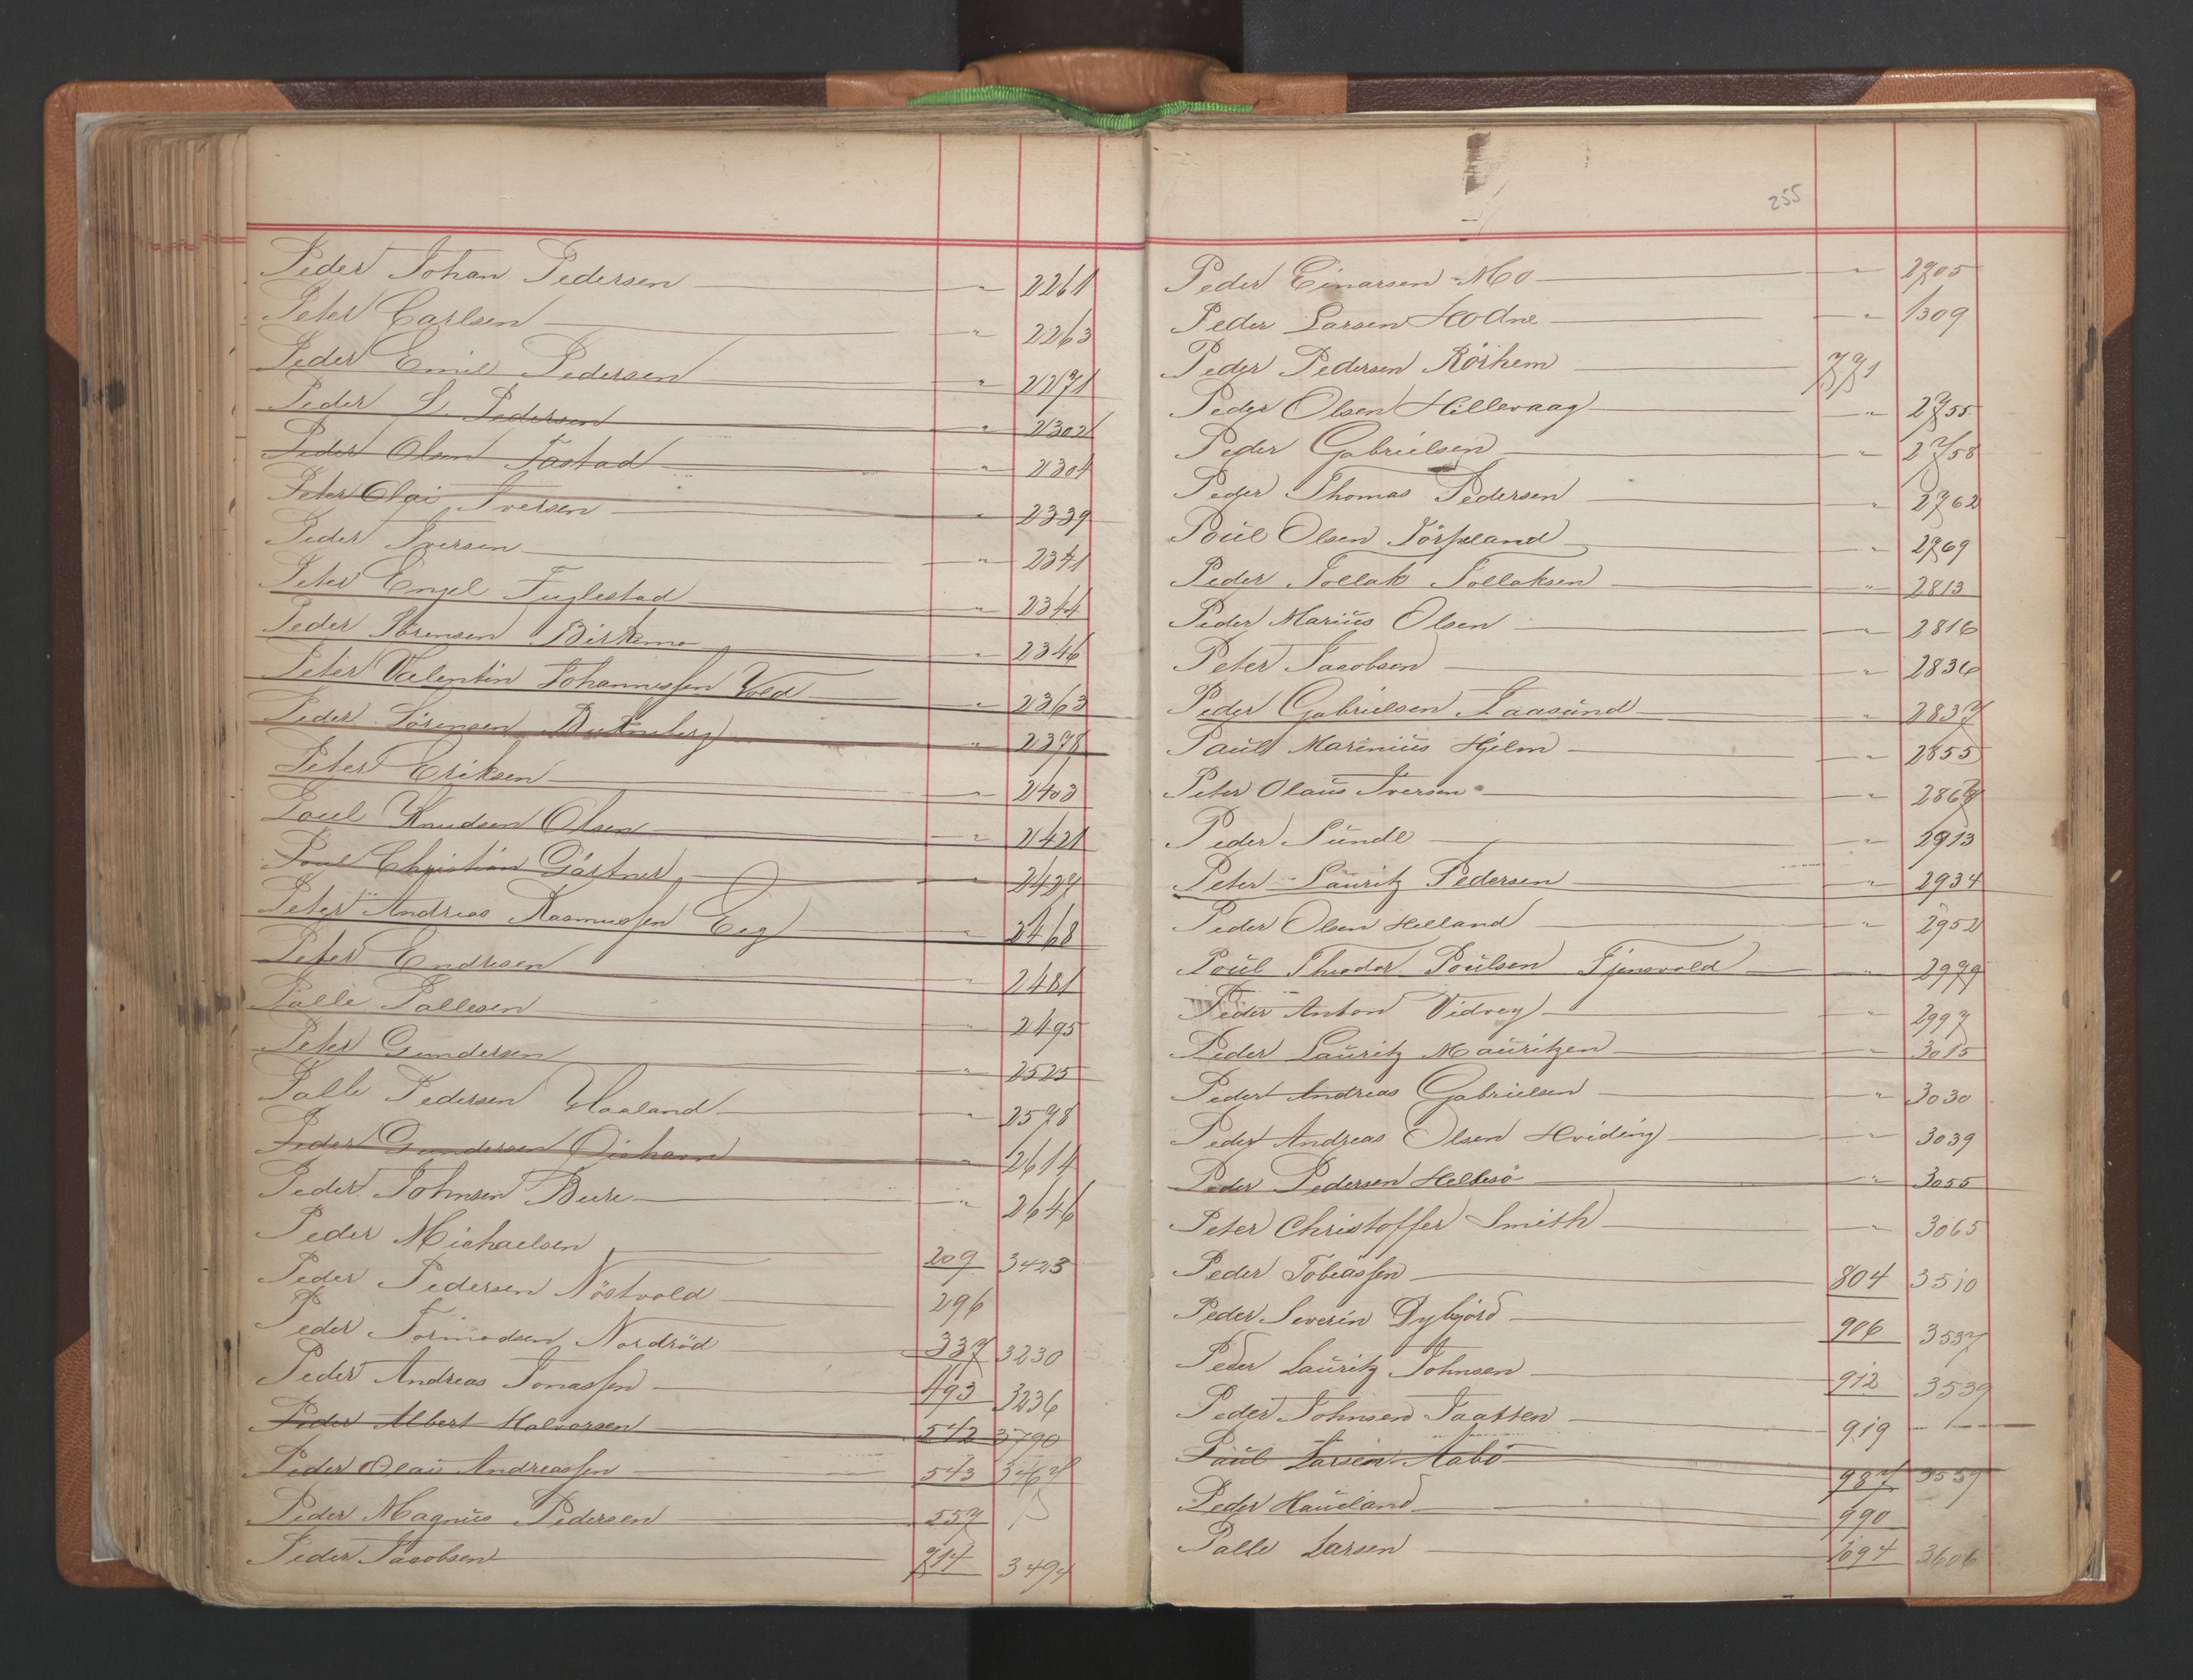 Peder Johan Pedersen — " 2261
Peter Carlsen — " 2263
Peder Emil Pedersen — " 2271
Peder L. Pedersen " 2302
Peder Olsen Tastad — " 2304
Peter Olai Iversen — " 2339
Peder Iversen — " 2341
Peter Engel Fuglestad — " 2344
Peder Sörensen Birkemo — " 2346
Peter Valentin Johannessen Vold — " 2363
Peder Sörensen — " 2378
Peter Eriksen — " 2403
Poul Knudsen Olsen — " 2421
Poul Christian Gärtner — " 2427
Peter Andreas Rasmussen Eeg — " 2468
Peter Endresen — " 2481
Palle Pallesen — " 2495
Peter Gundersen — " 2525
Palle Pedersen Haaland — " 2578
Peder Gundersen — " 2614
Peder Johnsen Bure — " 2646
Peder Michaelsen — 209 3423
Peder Pedersen Nöstvold — 296
Peder Tormodsen Nordröd — 337 3230
Peder Andreas Jonassen — 493 3236
Peder Albert Halvorsen — 542 3790
Peder Olai Andreassen — 543 3467
Peder Magnus Pedersen — 557
Peder Jacobsen — 714 3494
255
Peder Einarsen Mo — " 2705
Peder Larsen Hodne — " 1309
Peder Pedersen Rörhem — 771
Peder Olsen Hillevaag — " 2755
Peder Gabrielsen — " 2758
Peder Thomas Pedersen — " 2762
Poul Olsen Jörpeland — " 2769
Peder Tollak Tollaksen — " 2813
Peder Marius Olsen — " 2816
Peter Jacobsen — " 2836
Peder Gabrielsen Taasund — " 2837
Paul Marinius Hjelm — " 2855
Peter Olaus Iversen — " 2867
Peder Sunde — " 2913
Peter Lauritz Pedersen — " 2934
Peder Olsen Helland — " 2952
Poul Theodor Poulsen Tjensvold — " 2979
Peder Anton Vidvey — " 2997
Peder Lauritz Mauritzen — " 3015
Peder Andreas Gabrielsen — " 3030
Peder Andreas Olsen Hviding — " 3039
Peder Pedersen Helliesö — " 3055
Peter Christoffer Smith — " 3065
Peder Tobiassen — 804 3510
Peder Severin Dybjörd — 906 3537
Peder Lauritz Johnsen — 912 3539
Peder Johnsen Taatten — 919 — " —
Paul Larsen Aabö 987 3559
Peder Haueland — 990
Palle Larsen — 1094 3606